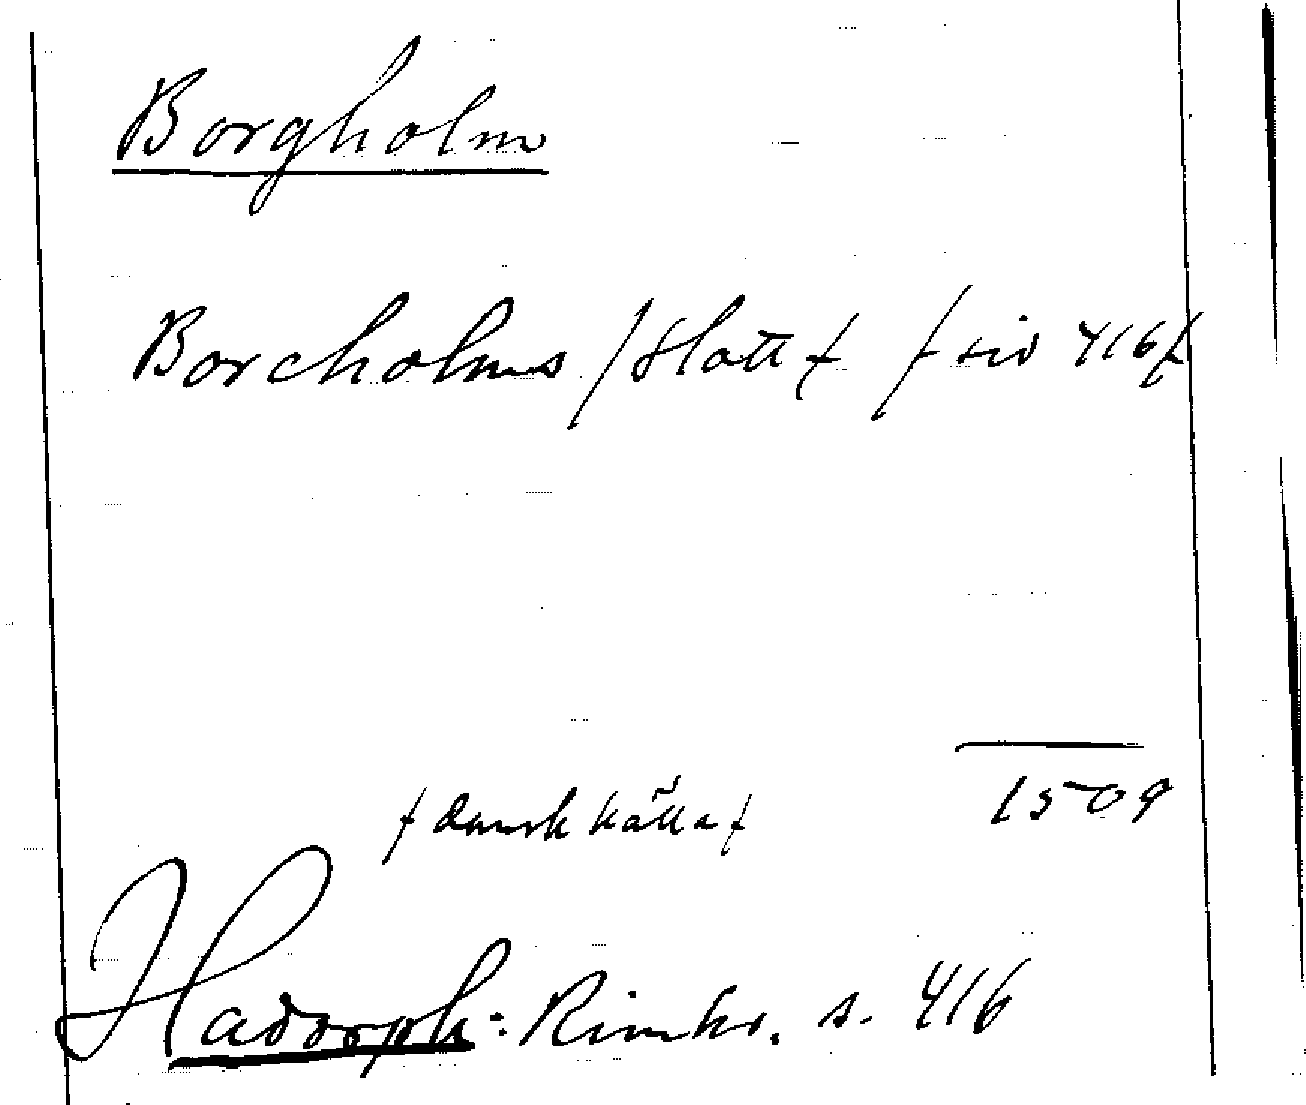 Borgholm
Borcholms /Slott/ /sid 416/
1509
/dansk källa/
Hadorph: Rimkr. s. 416